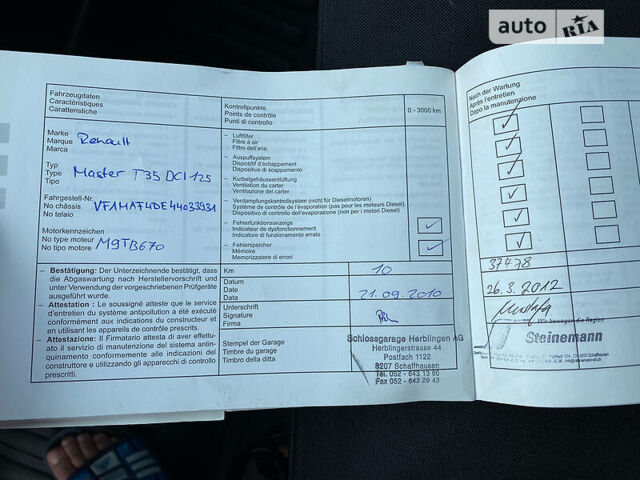 auto RIA
Fahrzeugdaten
Caractéristiques
Caratteristiche
Kontrollpunkte
Points de contrôle
Punti di controllo
0 - 3000 km
Marke
Marque
Marca
Renault
Typ
Type
Tipo
Master T35 DCI 125
Fahrgestell-Nr.
No châssis
No telaio
VF1MAF4DE44033931
Motorkennzeichen
No type moteur
No tipo motore
M9TB670
– Luftfilter
Filtre à air
Filtro dell'aria
– Auspuffsystem
Dispositif d'échappement
Dispositivo di scappamento
– Kurbelgehäuseentlüftung
Ventilation du carter
Ventilazione del carter
– Verdampfungskontrollsystem (nicht für Dieselmotoren)
Système de contrôle de l'évaporation (pas pour les moteurs Diesel)
Dispositivo di controllo dell'evaporazione (non per i motori Diesel)
– Fehlerfunktionsanzeige
Indicateur de dysfonctionnement
Indicatore di funzionamento errato
– Fehlerspeicher
Mémoire
Memorizzatore di errori
– Bestätigung: Der Unterzeichnende bestätigt, dass
die Abgaswartung nach Herstellervorschrift und
unter Verwendung der vorgeschriebenen Prüfgeräte
ausgeführt wurde.
– Attestation : Le soussigné atteste que le service
d'entretien du système antipollution a été exécuté
conformément aux indications du constructeur et
en utilisant les appareils de contrôle prescrits.
– Attestazione: Il Firmatario attesta di aver effet-
tuato il servizio di manutenzione del sistema antin-
quinamento conformemente alle indicazioni del
costruttore e utilizzando gli apparecchi di controllo
prescritti.
Km
10
Datum
Date
Data
21.09.2010
Unterschrift
Signature
Firma
Stempel der Garage
Timbre du garage
Timbro della ditta
Schlossgarage Herblingen AG
Herblingerstrasse 44
Postfach 1122
8207 Schaffhausen
Tel. 052 - 643 13 60
Fax 052 - 643 29 43
Nach der Wartung
Après l'entretien
Dopo la manutenzione
37478
26.3.2012
Wir bewegen die Region
Steinemann